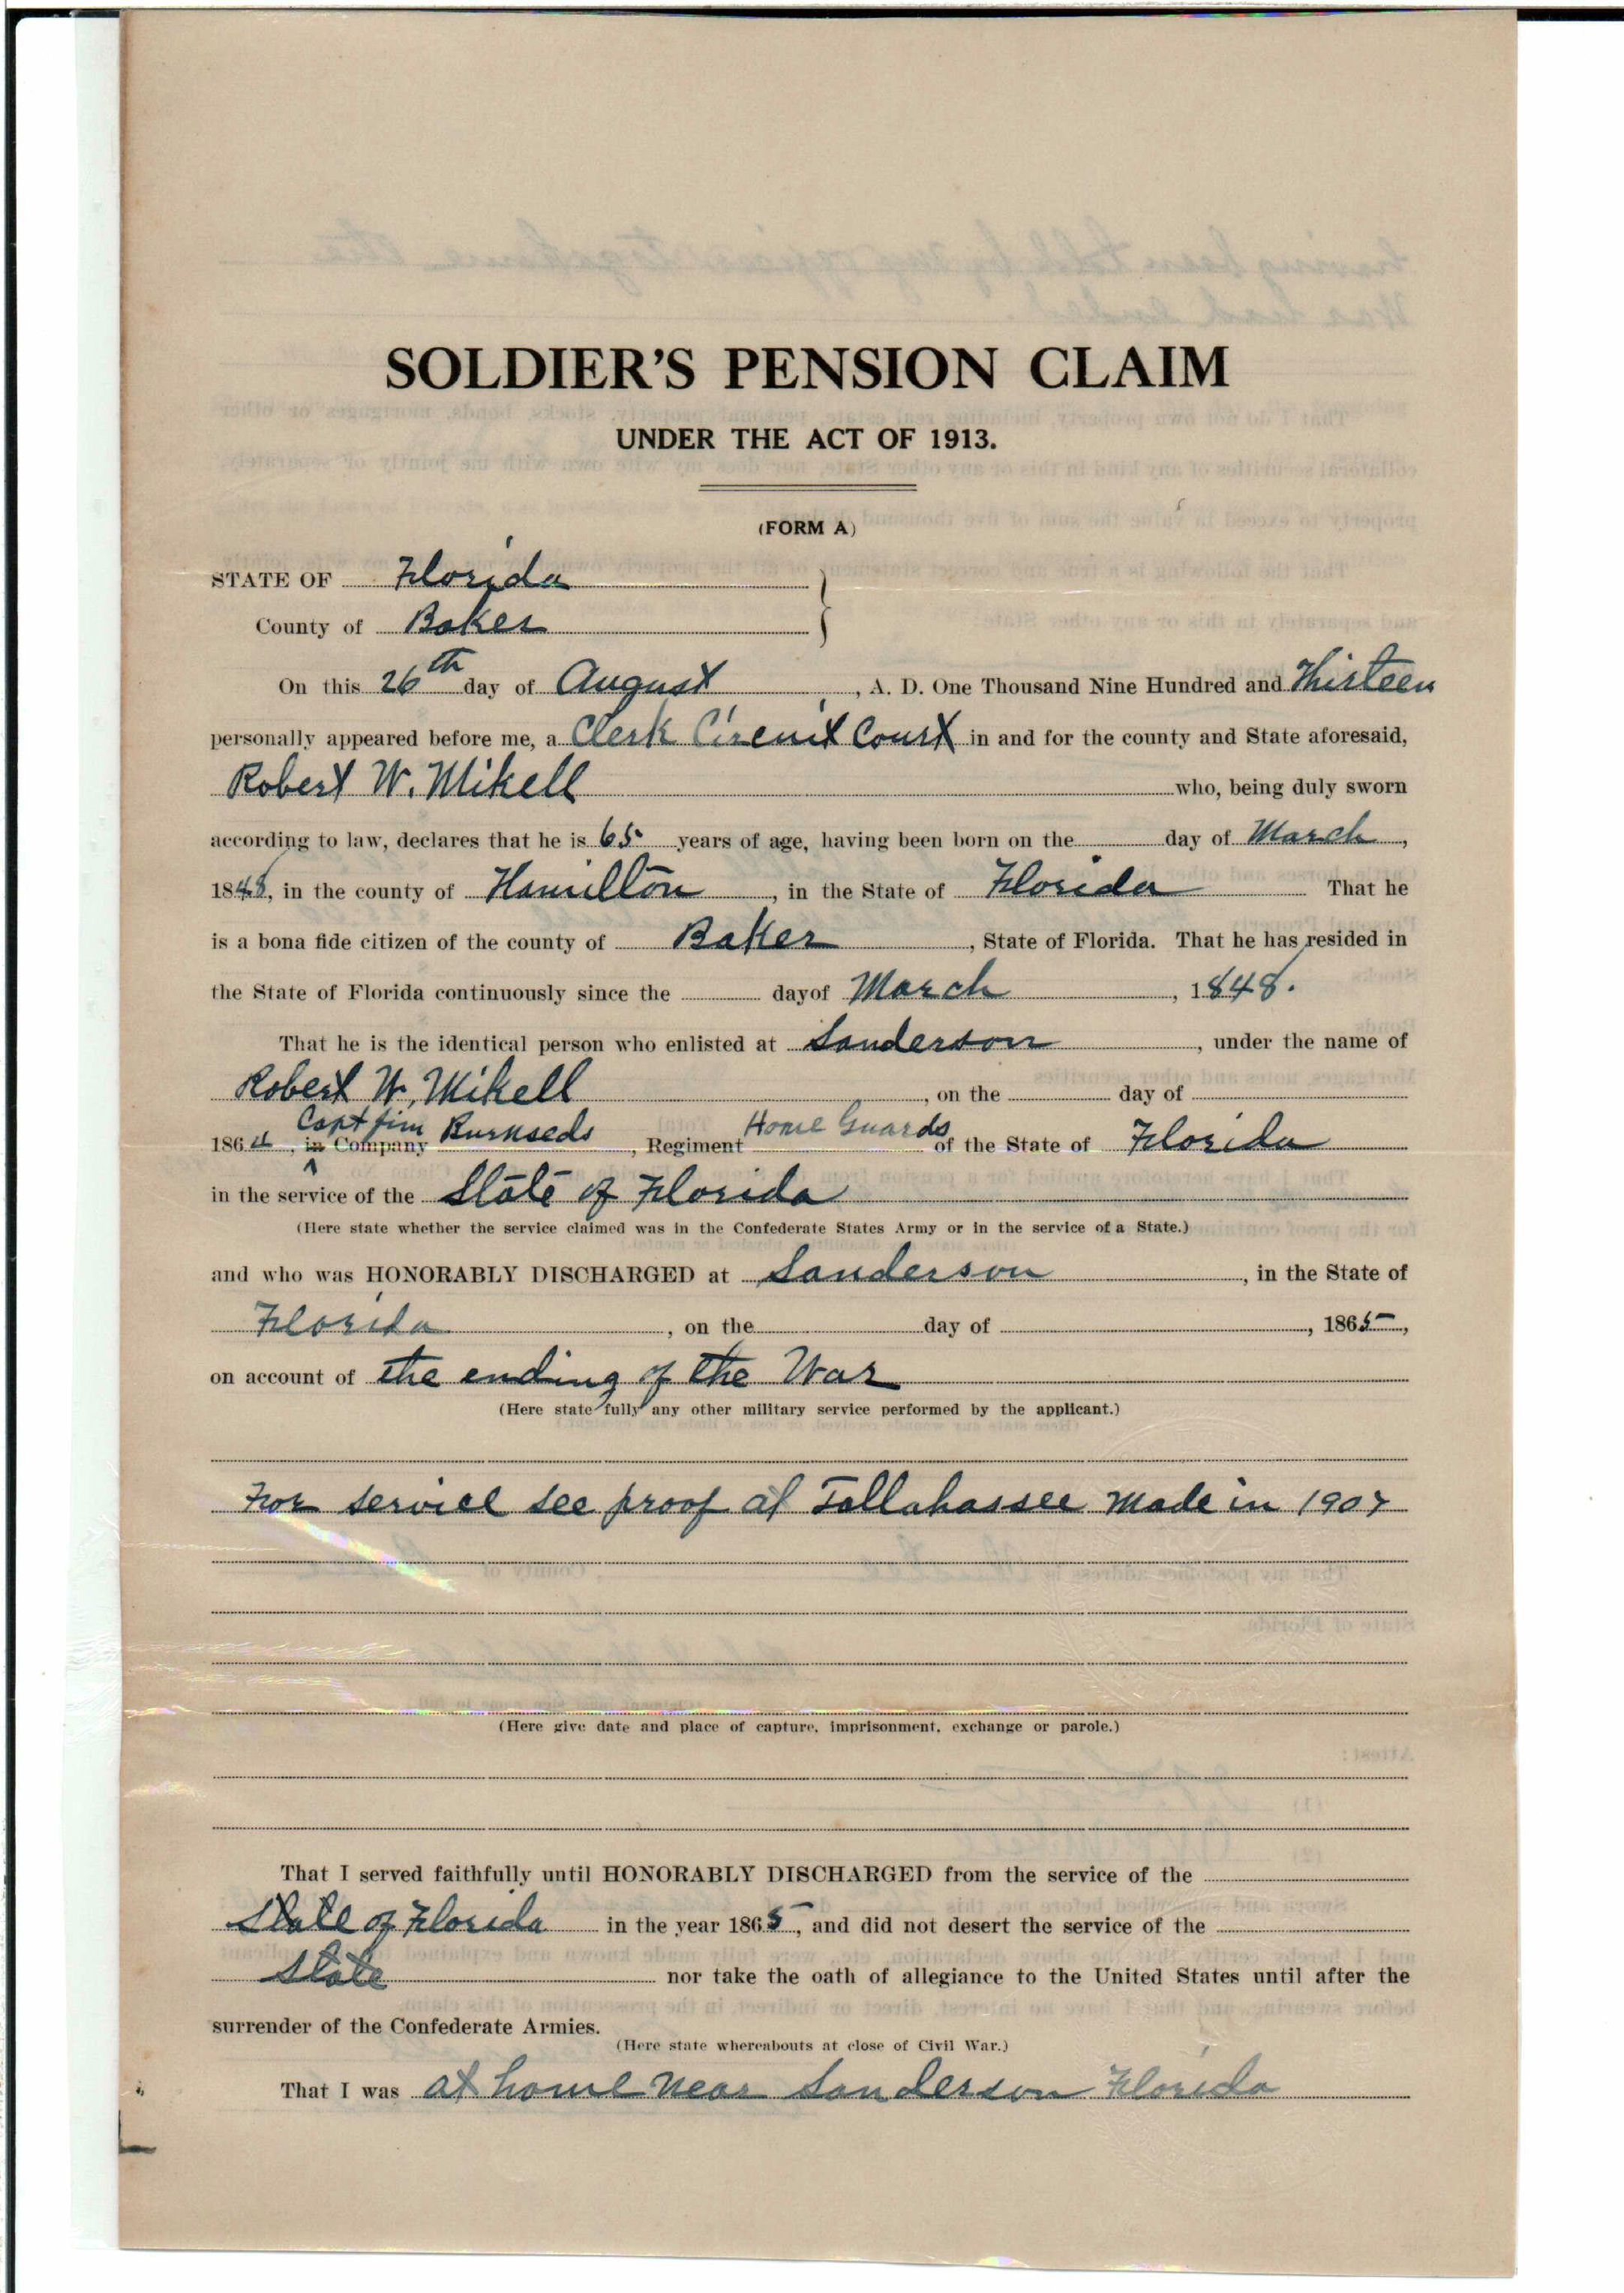 SOLDIER'S PENSION CLAIM
UNDER THE ACT OF 1913.
(FORM A)
STATE OF Florida
County of Baker
On this 26th day of August, A. D. One Thousand Nine Hundred and Thirteen
personally appeared before me, a Clerk Circuit Court in and for the county and State aforesaid,
Robert W. Mikell who, being duly sworn
according to law, declares that he is 65 years of age, having been born on the day of March,
1848, in the county of Hamilton, in the State of Florida That he
is a bona fide citizen of the county of Baker, State of Florida. That he has resided in
the State of Florida continuously since the dayof March, 1848.
That he is the identical person who enlisted at Sanderson, under the name of
Robert W. Mikell, on the day of
Capt Jim Home Guards
1864, in Company Burnseds, Regiment of the State of Florida
in the service of the State of Florida
(Here state whether the service claimed was in the Confederate States Army or in the service of a State.)
and who was HONORABLY DISCHARGED at Sanderson, in the State of
Florida, on the day of, 1865,
on account of the ending of the War
(Here state fully any other military service performed by the applicant.)
For service see proof at Tallahassee Made in 1907
(Here give date and place of capture, imprisonment, exchange or parole.)
That I served faithfully until HONORABLY DISCHARGED from the service of the
State of Florida in the year 1865, and did not desert the service of the
State nor take the oath of allegiance to the United States until after the
surrender of the Confederate Armies.
(Here state whereabouts at close of Civil War.)
That I was at home near Sanderson Florida